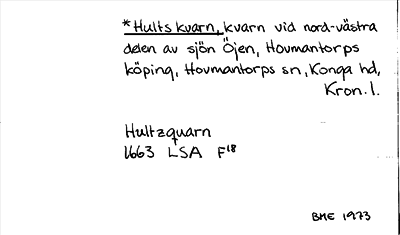 *Hults kvarn, kvarn vid nord-västra
delen av sjön Öjen, Hovmantorps
köping, Hovmantorps sn, Konga hd,
Kron. l.
Hultzquarn
1663 LSA F18
BME 1973